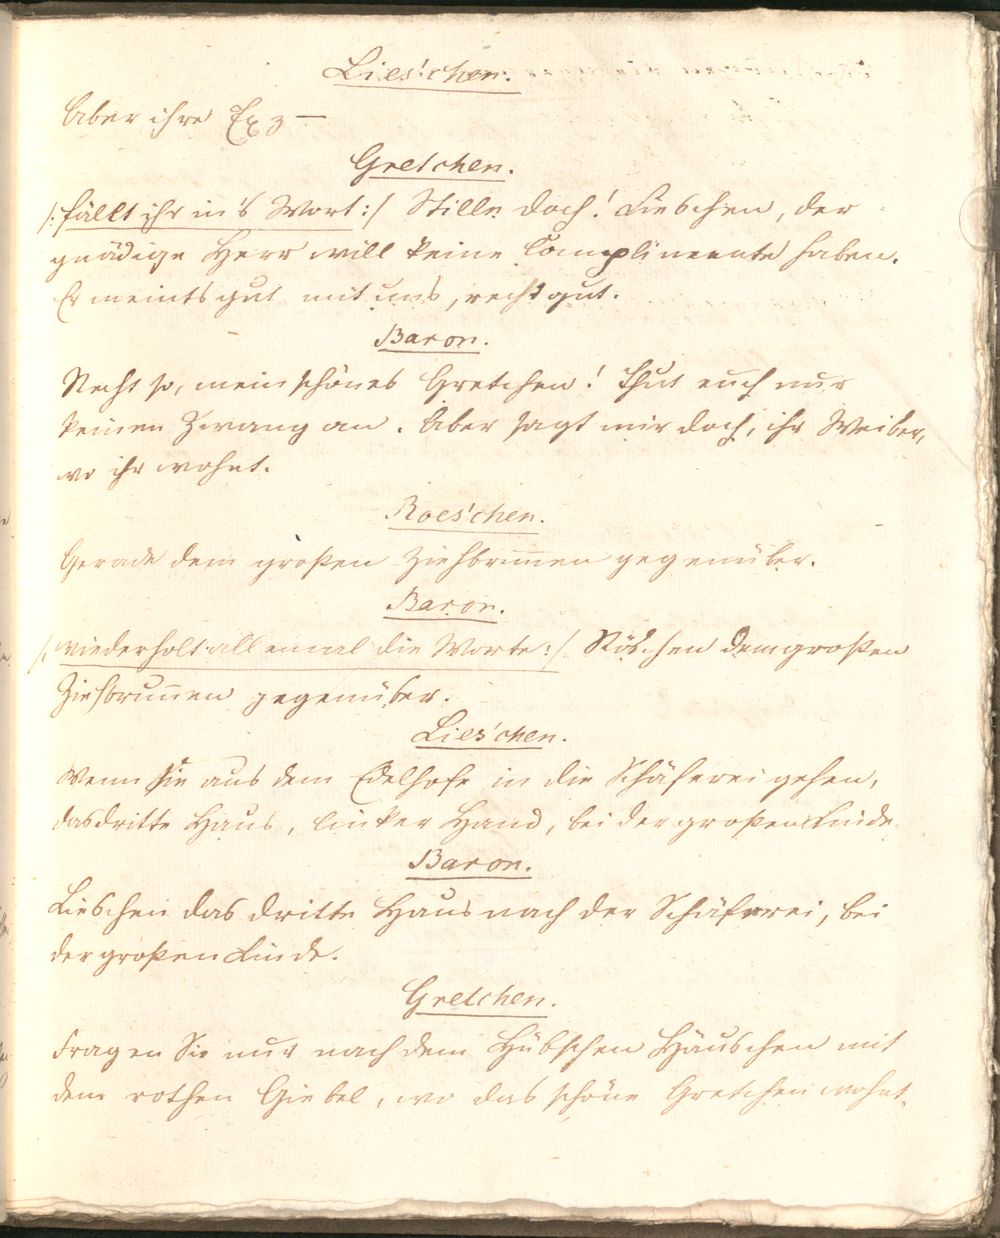 Lies'chen.
Aber ihre Exz —
Gretchen.
/: fällt ihr in's Wort :/ Stille doch! Lieschen, der
gnädige Herr will keine Complimente haben.
Er meints gut mit uns, recht gut.
Baron.
Recht so, mein schönes Gretchen! Thut euch nur
keinen Zwang an. Aber sagt mir doch, ihr Weiber,
wo ihr wohnt.
Roes'chen.
Gerade dem großen Ziehbrunnen gegenüber.
Baron.
/: wiederholt allemal die Worte :/ Röschen dem großen
Ziehbrunnen gegenüber.
Lies'chen.
Wenn sie aus dem Edelhofe in die Schäferei gehen,
das dritte Haus, linker Hand, bei der großen Linde.
Baron.
Lieschen das dritte Haus nach der Schäferei, bei
der großen Linde.
Gretchen.
Fragen Sie nur nach dem Hübschen Häuschen mit
dem rothen Giebel, wo das schöne Gretchen wohnt.